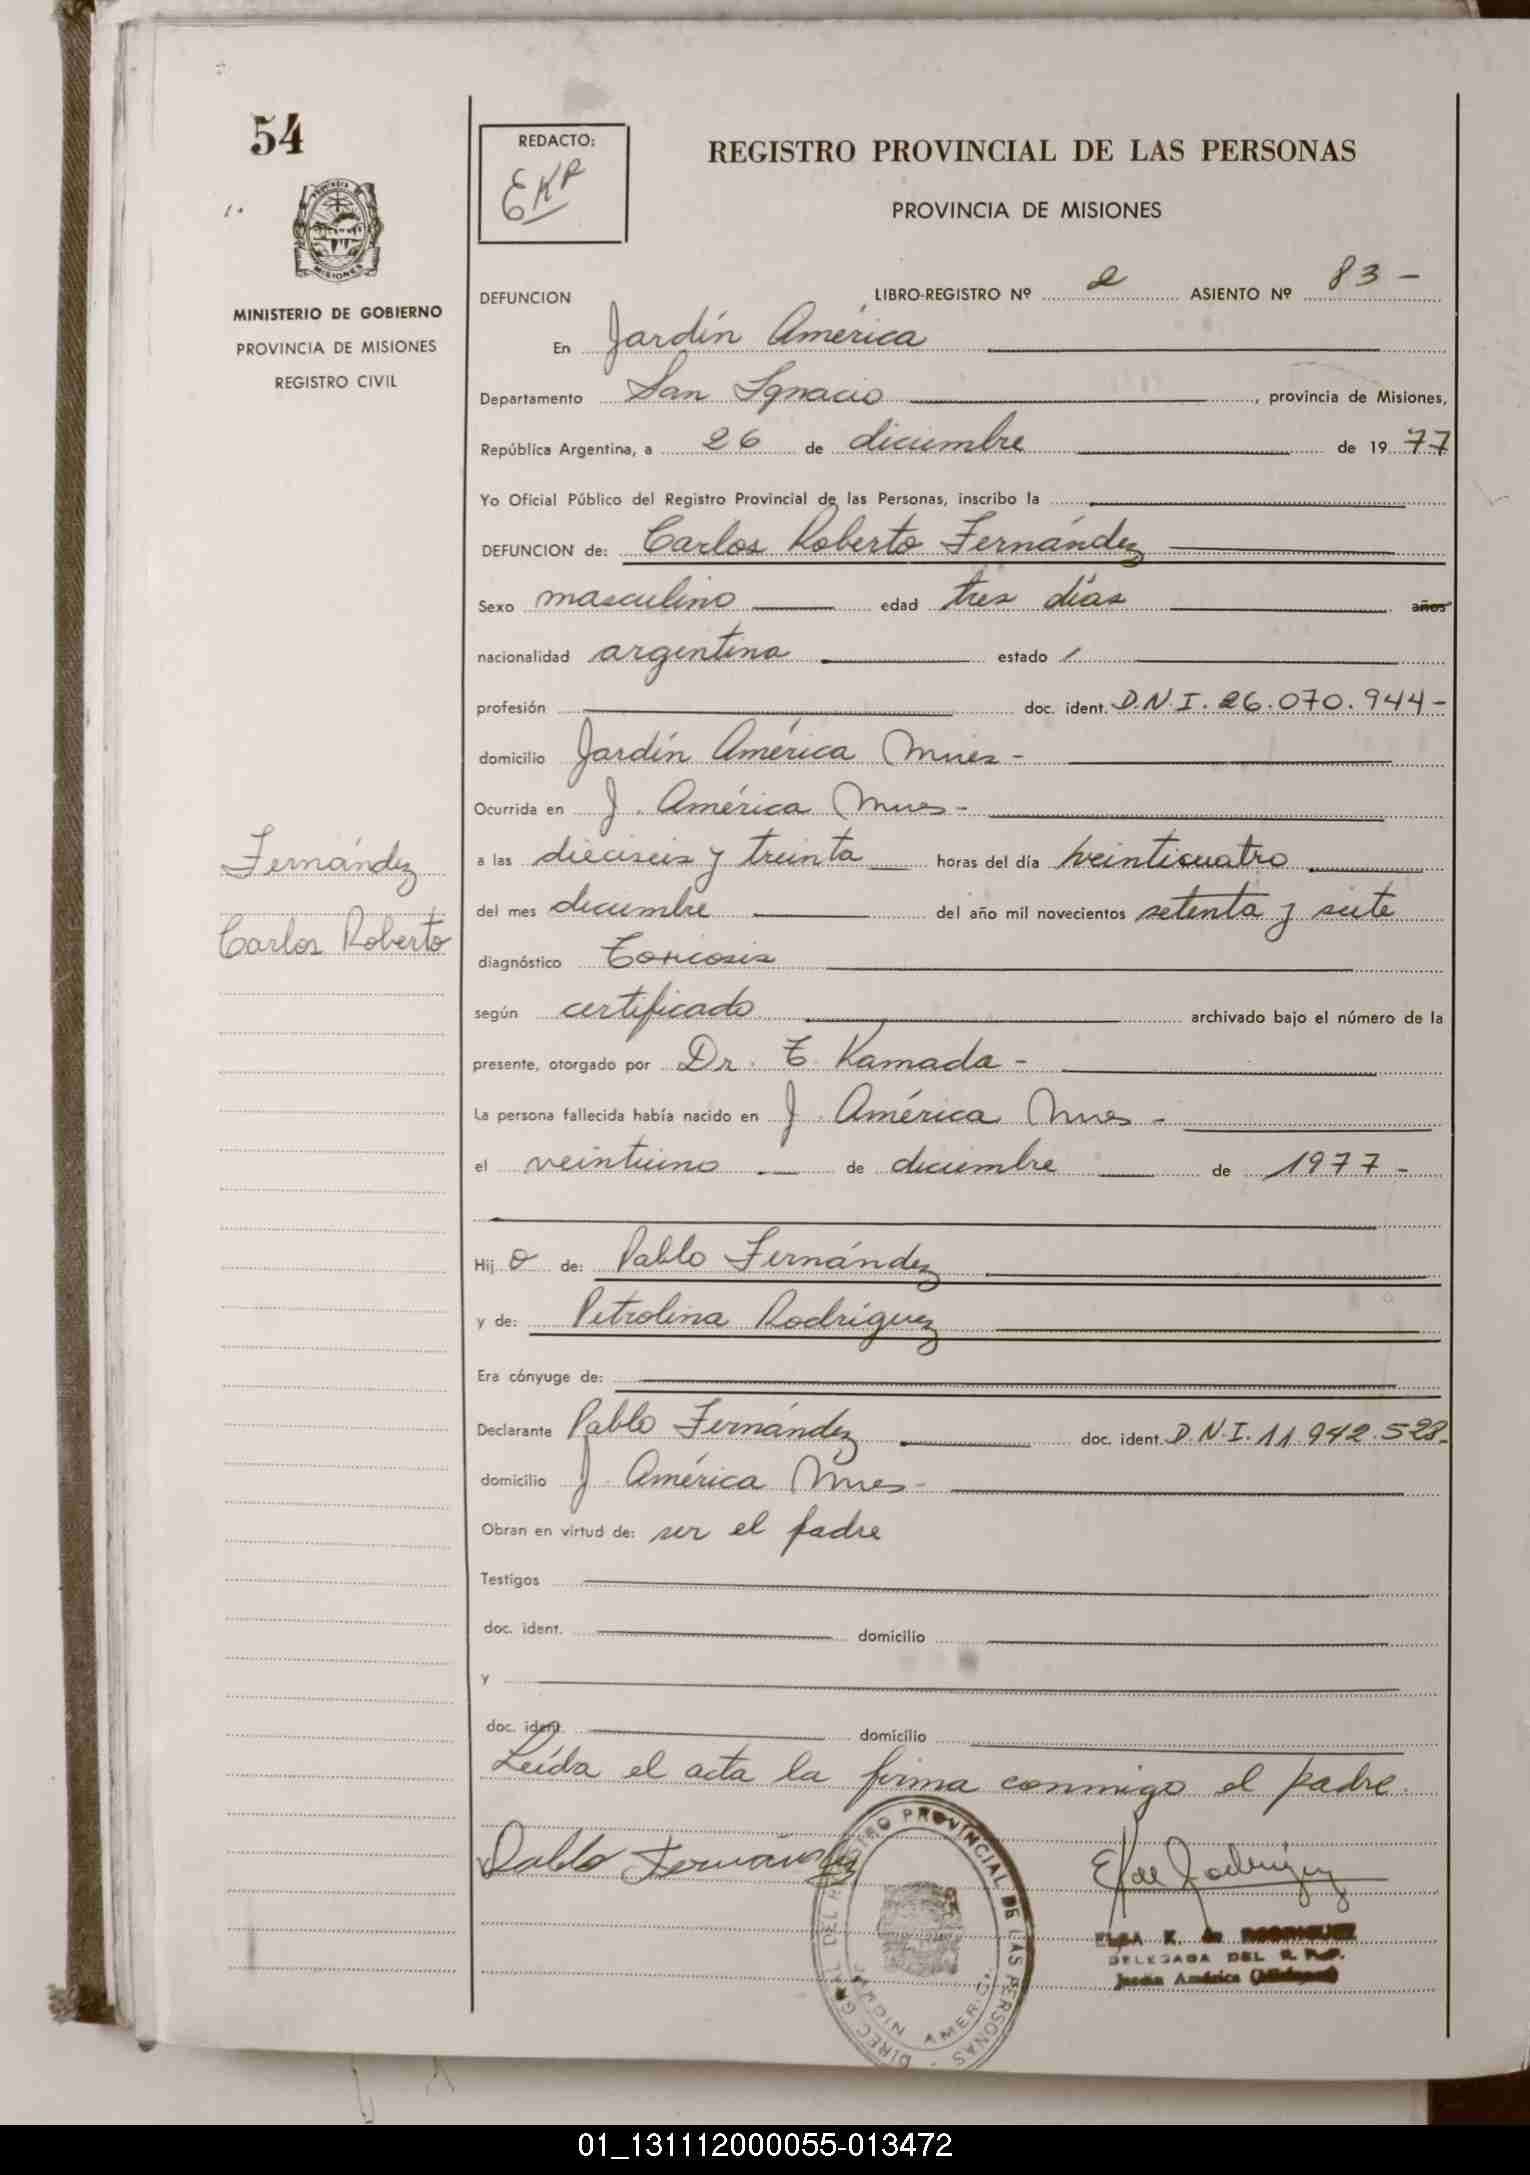 54
REDACTO:
EKR
REGISTRO PROVINCIAL DE LAS PERSONAS
PROVINCIA DE MISIONES
MISIONES
MINISTERIO DE GOBIERNO
PROVINCIA DE MISIONES
REGISTRO CIVIL
DEFUNCION LIBRO-REGISTRO Nº 2 ASIENTO Nº 83 -
En Jardín América
Departamento San Ignacio, provincia de Misiones,
República Argentina, a 26 de diciembre de 1977
Yo Oficial Público del Registro Provincial de las Personas, inscribo la
DEFUNCION de: Carlos Roberto Fernández
Sexo masculino edad tres días años
nacionalidad argentina estado /
profesión doc. ident. D.N.I. 26.070.944-
domicilio Jardín América Mnes -
Ocurrida en J. América Mnes -
Fernández
Carlos Roberto
a las dieciseis y treinta horas del día veinticuatro
del mes diciembre del año mil novecientos setenta y siete
diagnóstico Toxicosis
según certificado archivado bajo el número de la
presente, otorgado por Dr. T. Kamada -
La persona fallecida había nacido en J. América Mnes -
el veintiuno de diciembre de 1977 -
Hijo de: Pablo Fernández
y de: Petrolina Rodríguez
Era cónyuge de:
Declarante Pablo Fernández doc. ident. D.N.I. 11.942.528-
domicilio J. América Mnes -
Obran en virtud de: ser el padre
Testigos
doc. ident. domicilio
y
doc. ident. domicilio
Leída el acta la firma conmigo el padre.
Pablo Fernández
EK de Rodríguez
DIREC. GRAL. DEL REGISTRO PROVINCIAL DE LAS PERSONAS -
JARDIN AMERICA
ELBA K. de RODRIGUEZ
DELEGADA DEL R. P. P.
Jardín América (Misiones)
01_131112000055-013472